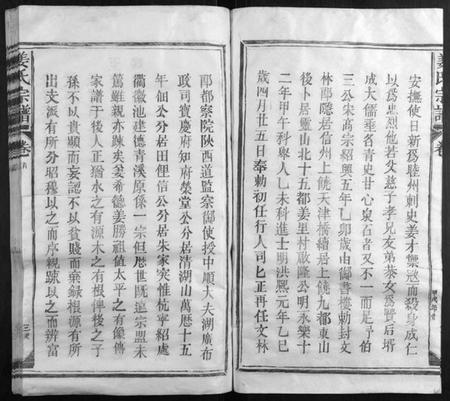 姜氏宗譜
安撫使日新為睦州刺史姜才燬寇而殺身成仁
以為忠烈他若父慈子孝兄友弟恭女為賢后壻
成大儒垂各青史甘心泉石者又不一而足予伯
三公宋高宗紹興五年乙卯歲由御書樓勅封文
林郎隱居信州上饒天津橋續居上饒九都東山
後卜居靈山北十五都姜里村啟隆公明永樂十
二年甲午科舉人乙未科進士明洪熙元年乙巳
歲四月廿五日奉勅初任行人司七正再任文林
郎都察院陝西道監察御使授中順大夫湖廣布
政司寶慶府知府榮堂公分居清湖山萬曆十五
年佃公分居田俚信公分居朱家寀惟杭平紹處
衢徽池建德青溪原係一宗但歷世既遠宗盟未
篤雖親亦踈矣爰希德姜勝祖值太平之有像傳
家譜于後人正猶水之有源木之有根俾後之子
孫不以貴顯而妄認不以貧賤而棄録根源有所
出支派有所分昭穆以之而序親踈以之而辨富
姜氏宗譜
卷首
三